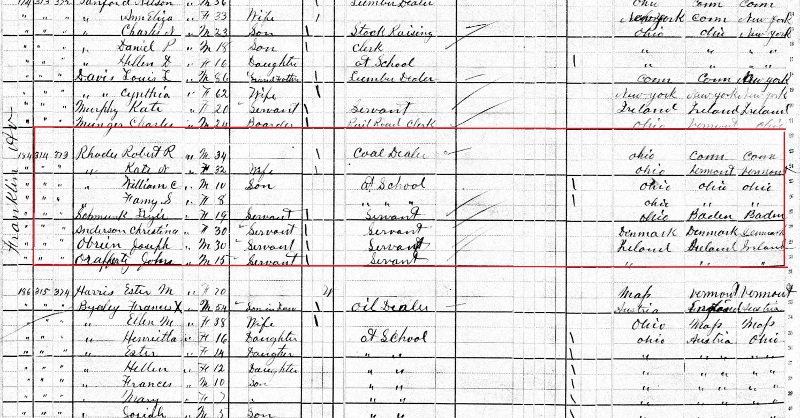 Sanford Nelson " M 56 Lumber Dealer Ohio Conn Conn
" Ann Eliza " F 33 Wife New York Conn New York
" Charles " M 23 Son Stock Raising Ohio Ohio New York
" Daniel P " M 18 Son Clerk " " "
" Hellen D " F 16 Daughter At School " " "
Davis Louis L " M 86 Lumber Dealer Conn Conn New York
" " Cynthia " F 62 Wife New York New York New York
Murphy Kate " F 20 Servant Servant Ireland Ireland Ireland
Munger Charles " M 24 Boarder Rail Road Clerk Ohio Vermont Ohio
Franklin Av
184 314 373 Rhodes Robert R " M 34 Coal Dealer Ohio Conn Conn
" " " " Kate " F 32 Wife Ohio Vermont Vermont
" " " " William C " M 10 Son At School Ohio Ohio Ohio
" " " " Fanny S " F 8 " " " Ohio " "
" " " Schmunk " F 19 Servant Servant Ohio Baden Baden
" " " Anderson Christina " F 30 Servant Servant Denmark Denmark Denmark
" " " Obrien Joseph " M 30 Servant Servant Ireland Ireland Ireland
" " " Orafferty John " M 15 Servant Servant " " "
186 315 374 Harris Ester M " F 20 Mass Vermont Vermont
" " " Francis X " M 54 Son in Law Oil Dealer Austria Austria
" " " " Ellen M " F 38 Wife Ohio Mass Mass
" " " " Henrietta " F 16 Daughter At School Ohio Austria Ohio
" " " " Ester " F 14 Daugter " " " " "
" " " " Hellen " F 12 Daughter " " " " "
" " " " Frances " M 10 Son " " " " "
" " " " Mary " F 7 " " " "
" " " " Josiah " M 5 Son " " "